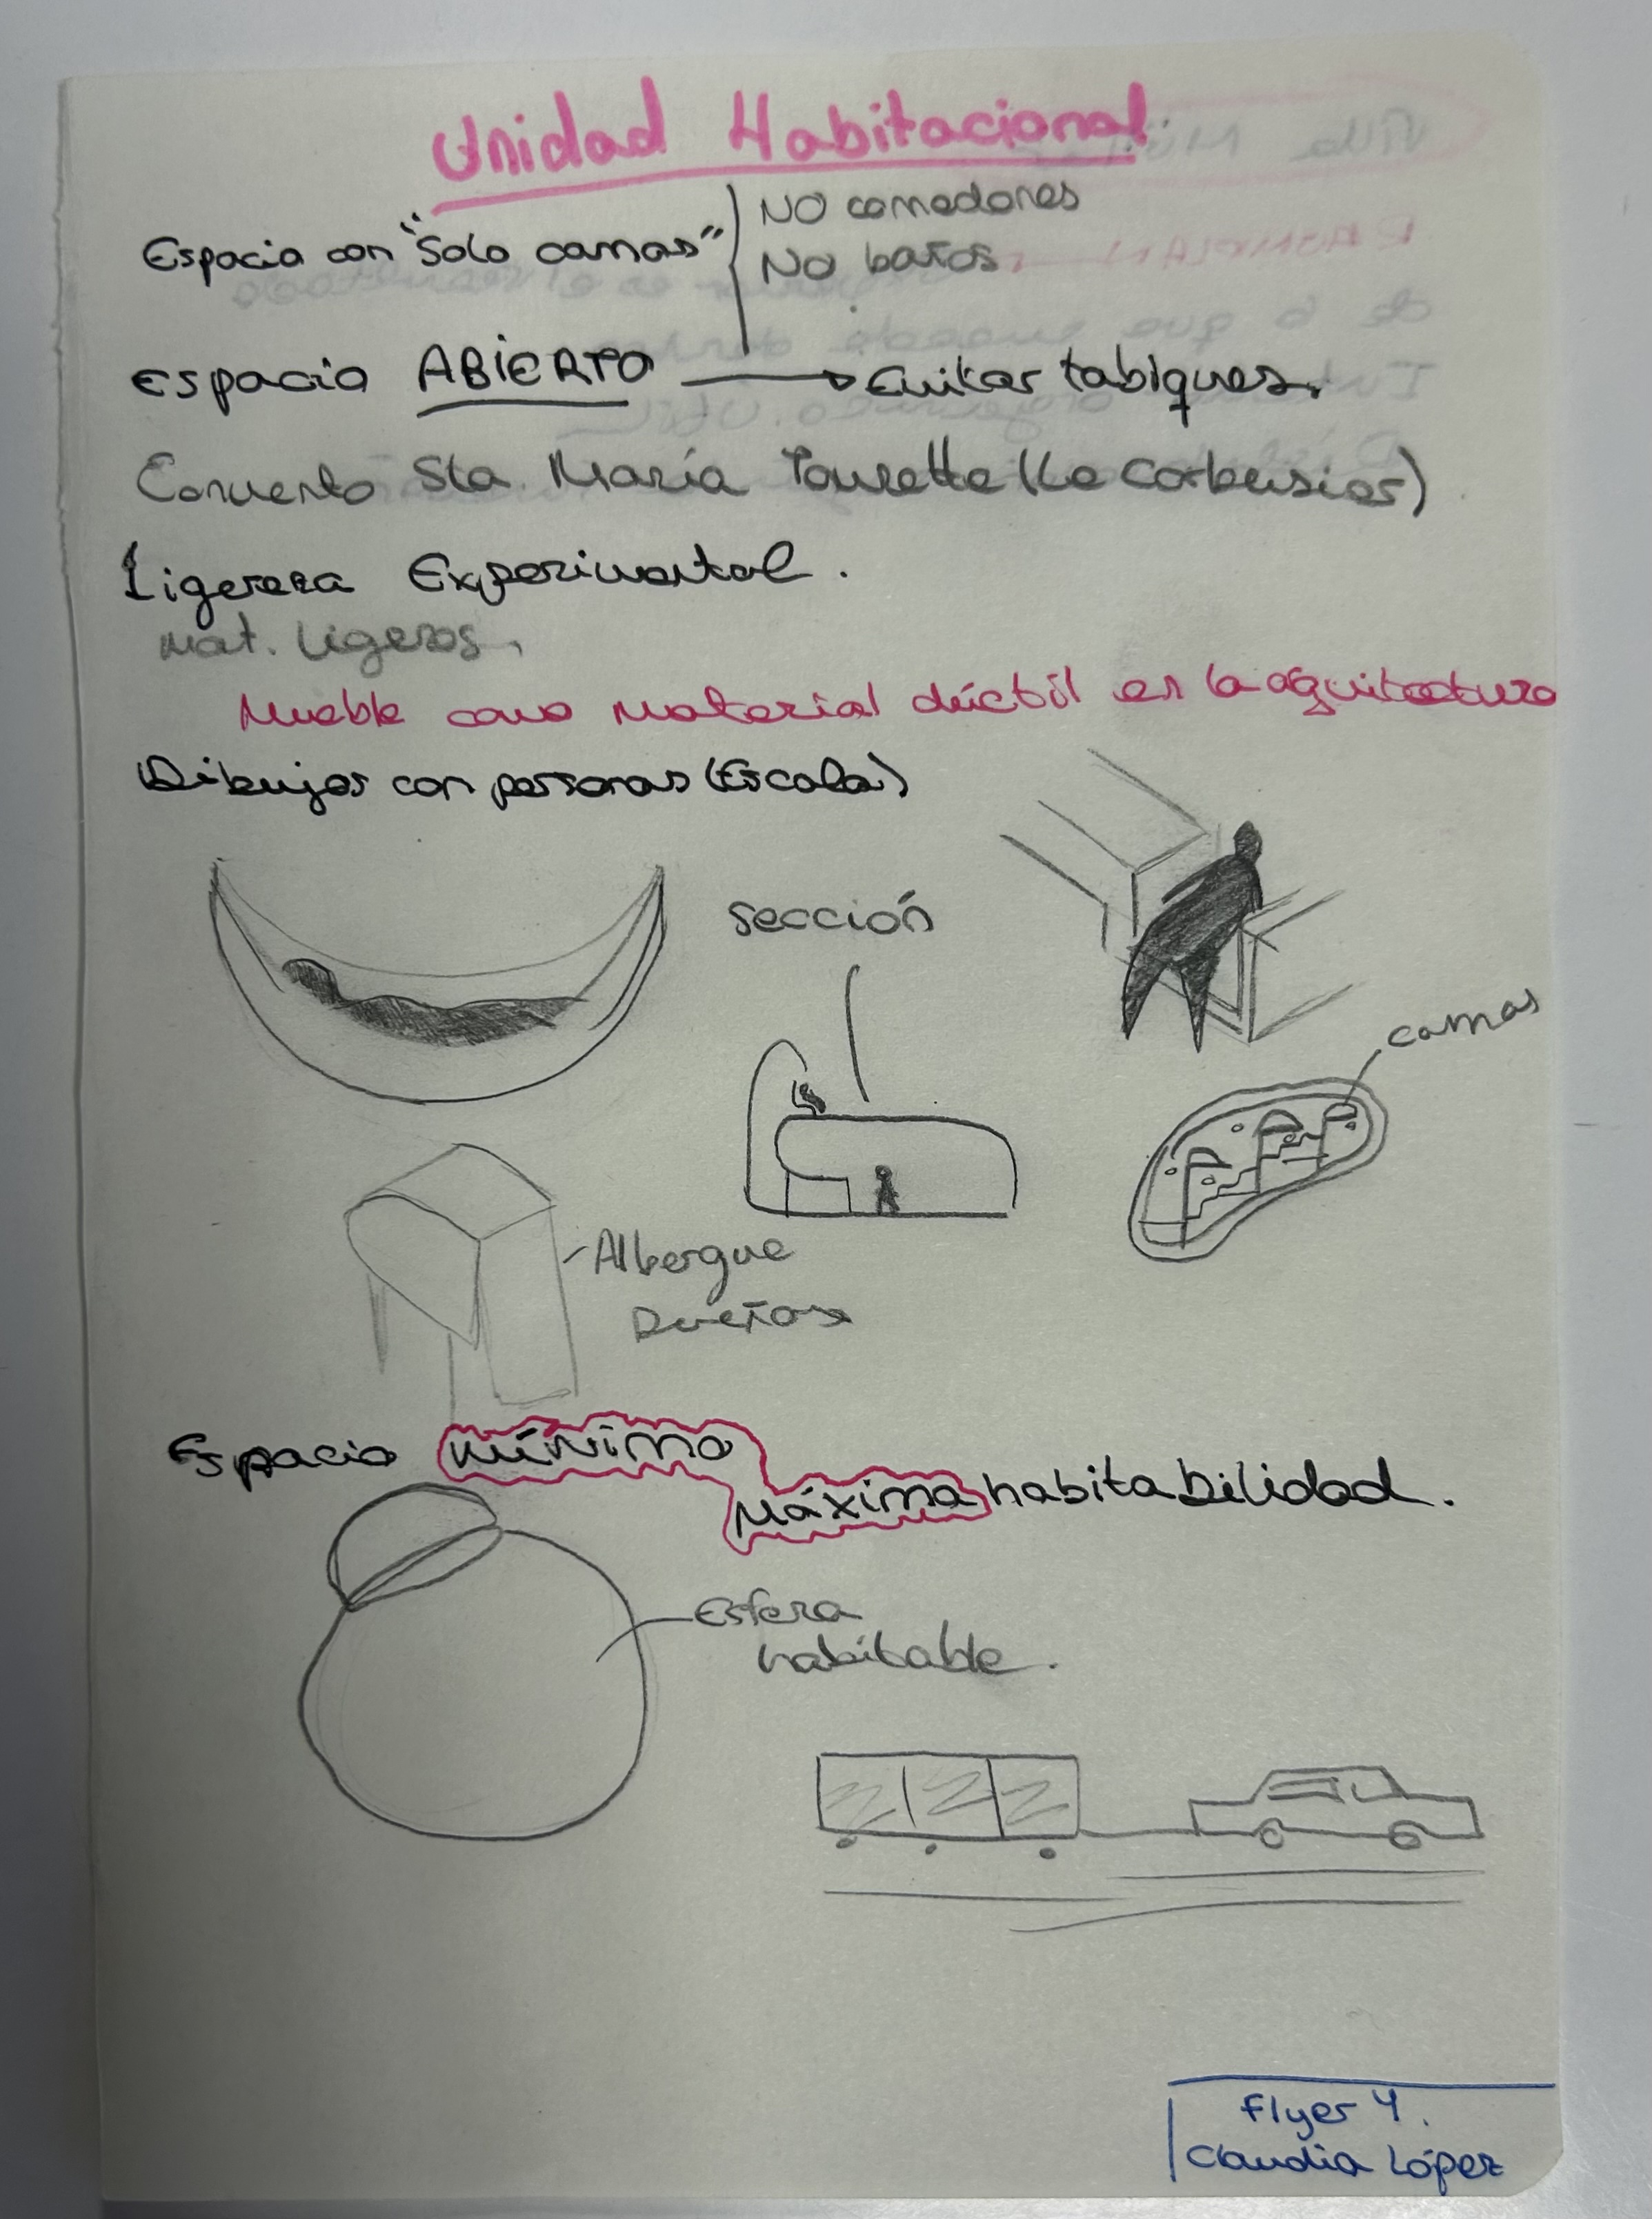 Unidad Habitacional
Espacio con "Solo camas"
NO comedores
NO baños.
Espacio ABIERTO → Evitar tabiques.
Convento Sta. María Tourette (Le Corbusier).
Ligereza Experimental.
Mat. Ligeros.
Mueble como material dúctil en la arquitectura
Dibujos con personas (Escala)
sección
camas
Albergue
Dueñas
Espacio mínimo
Máxima habitabilidad.
Esfera
habitable.
Flyer 4.
Claudia López